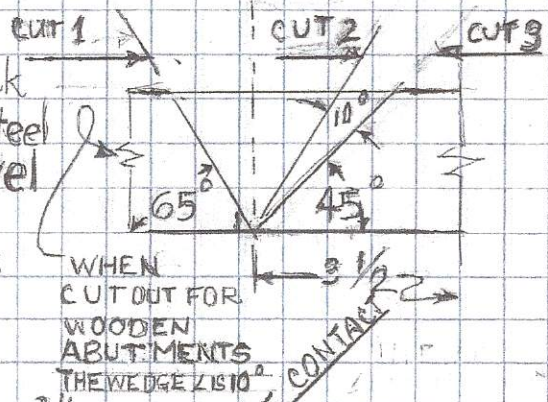 CUT 1
CUT 2
CUT 3
teel
10°
65°
45°
3 1/2
WHEN
CUTOUT FOR
WOODEN
ABUTMENTS
THE WEDGE ∠ IS 10°
CONTACT